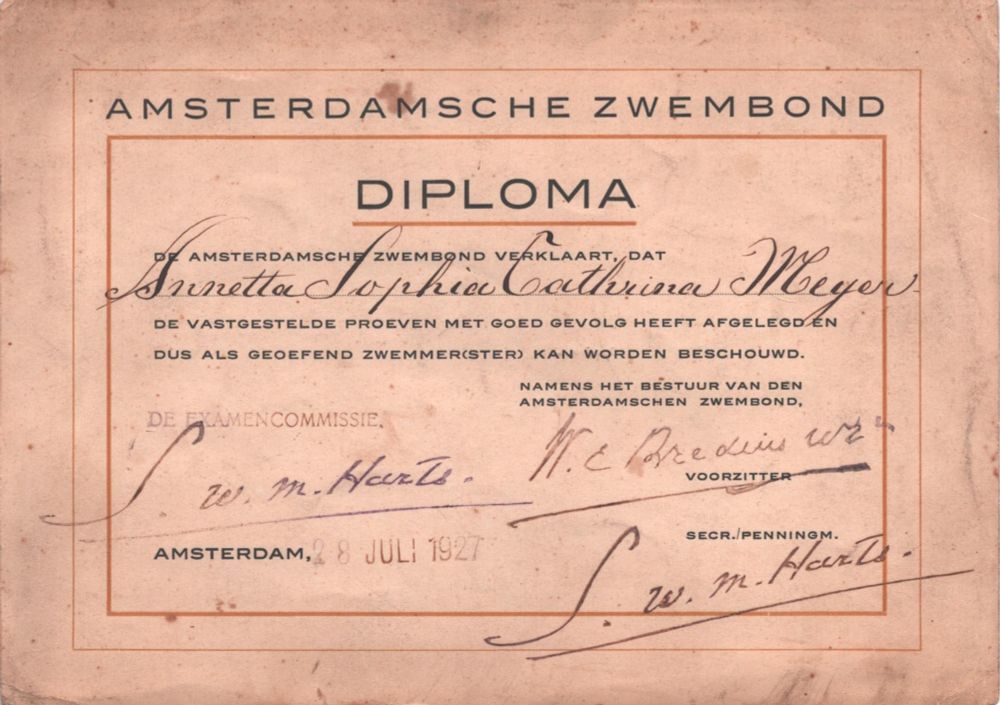 AMSTERDAMSCHE ZWEMBOND
DIPLOMA
DE AMSTERDAMSCHE ZWEMBOND VERKLAART, DAT
Annetta Sophia Cathrina Meyer
DE VASTGESTELDE PROEVEN MET GOED GEVOLG HEEFT AFGELEGD EN
DUS ALS GEOEFEND ZWEMMER(STER) KAN WORDEN BESCHOUWD.
NAMENS HET BESTUUR VAN DEN
AMSTERDAMSCHEN ZWEMBOND,
DE EXAMENCOMMISSIE,
W. E. Bredius
VOORZITTER
S. W. M. Harts.
AMSTERDAM, 28 JULI 1927
SECR./PENNINGM.
S. W. M. Harts.